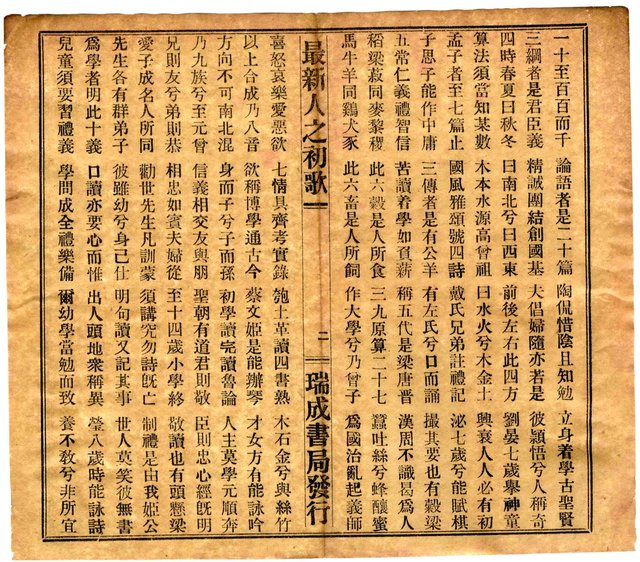 一十至百百而千 論語者是二十篇 陶侃惜陰且知勉 立身着學古聖賢
三綱者是君臣義 精誠團結創國基 夫倡婦隨亦若是 彼穎悟兮人稱奇
四時春夏曰秋冬 曰南北兮曰西東 前後左右此四方 劉晏七歲舉神童
算法須當知某數 木本水源高曾祖 曰水火兮木金土 興衰人人必有初
孟子者至七篇止 國風雅頌號四詩 戴氏兄弟註禮記 泌七歲兮能賦棋
子思子能作中庸 三傳者是有公羊 有左氏兮口而誦 撮其要也有穀梁
五常仁義禮智信 苦讀着學如負薪 稱五代是梁唐晋 漢周不識曷爲人
稻梁菽同麥黎稷 此六穀是人所食 三九原算二十七 蠶吐絲兮蜂釀蜜
馬牛羊同鷄犬豕 此六畜是人所飼 作大學兮乃曾子 爲國治亂起義師
最新人之初歌 二 瑞成書局發行
喜怒哀樂愛惡欲 七情具齊考實錄 匏土革讀四書熟 木石金兮與絲竹
以上合成乃八音 欲稱博學通古今 蔡文姬是能辦琴 才女方有能詠吟
方向不可南北混 身而子兮子而孫 初學讀完讀魯論 人主莫學元順奔
乃九族兮至元曾 信義相交友與朋 聖朝有道君則敬 臣則忠心經旣明
兄則友兮弟則恭 相忠如賓夫婦從 至十四歲小學終 敬讀也有頭懸梁
愛子成名人所同 勸世先生凡訓蒙 須講究勿詩旣亡 制禮是由我姬公
先生各有群弟子 彼雖幼兮身己仕 明句讀又記其事 世人莫笑彼無書
爲學者明此十義 口讀亦要心而惟 出人頭地衆稱異 瑩八歲時能詠詩
兒童須要習禮義 學問成全禮樂備 爾幼學當勉而致 養不敎兮非所宜